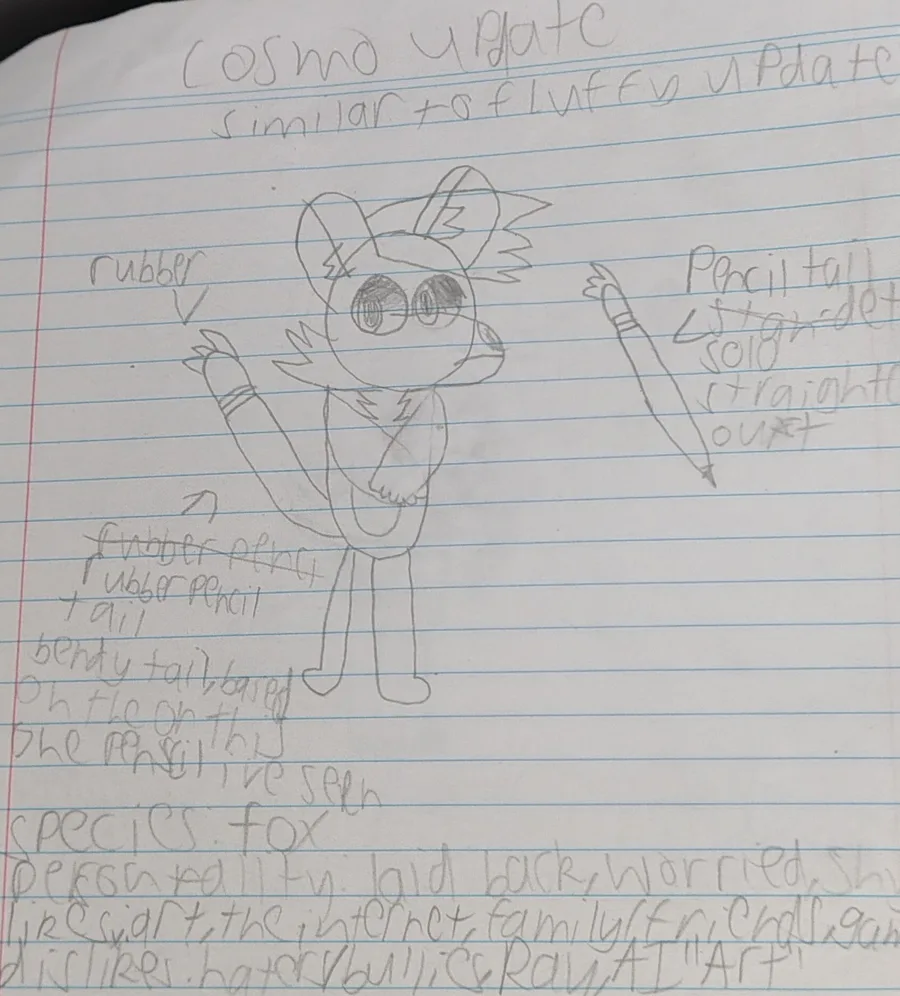 cosmo update
similar to fluffy update
rubber
Pencil tail
solo
straight
out
rubber penci
rubber pencil
tail
bendy tail, based
on the on this
one pencil ive seen
species. fox
personality: laid back, worried, sh
likes: art, the internet, family/friends, gam
dislikes. haters/bullies, Ray, AI "Art"